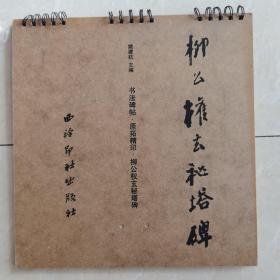 柳公權玄秘塔碑
书法碑帖·原拓精印·柳公权玄秘塔碑
主编
西泠印社出版社